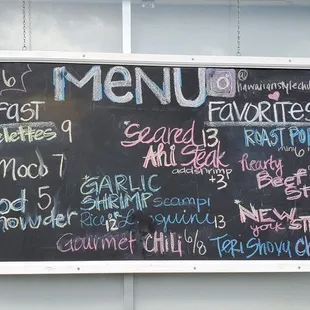 MENU @hawaiianstylechi
6
FAST
FAVORITES
elettes 9
Moco 7
od 5
howder
Seared 13
Ahi Steak
add shrimp +3
GARLIC
SHRIMP scampi
Rice 12 linguini 13
Gourmet CHILI 6/8
ROAST POR
mini 6
hearty
Beef
St
NEW
york St
Teri Shoyu Ch